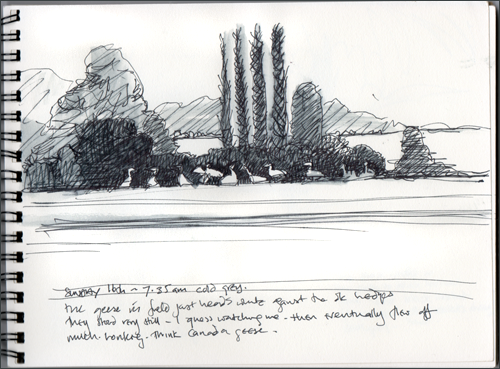 Sunday 16th ~ 7.35am cold grey.
The geese in field just heads white against the dk hedges
They stood very still - I guess watching me - then eventually flew off
much honking. Think Canada geese.